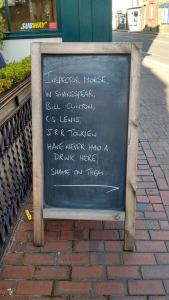 SUBWAY
INSPECTOR MORSE,
W SHAKESPEAR,
BILL CLINTON,
C.S LEWIS,
J R R TOLKIEN
HAVE NEVER HAD A
DRINK HERE!
SHAME ON THEM